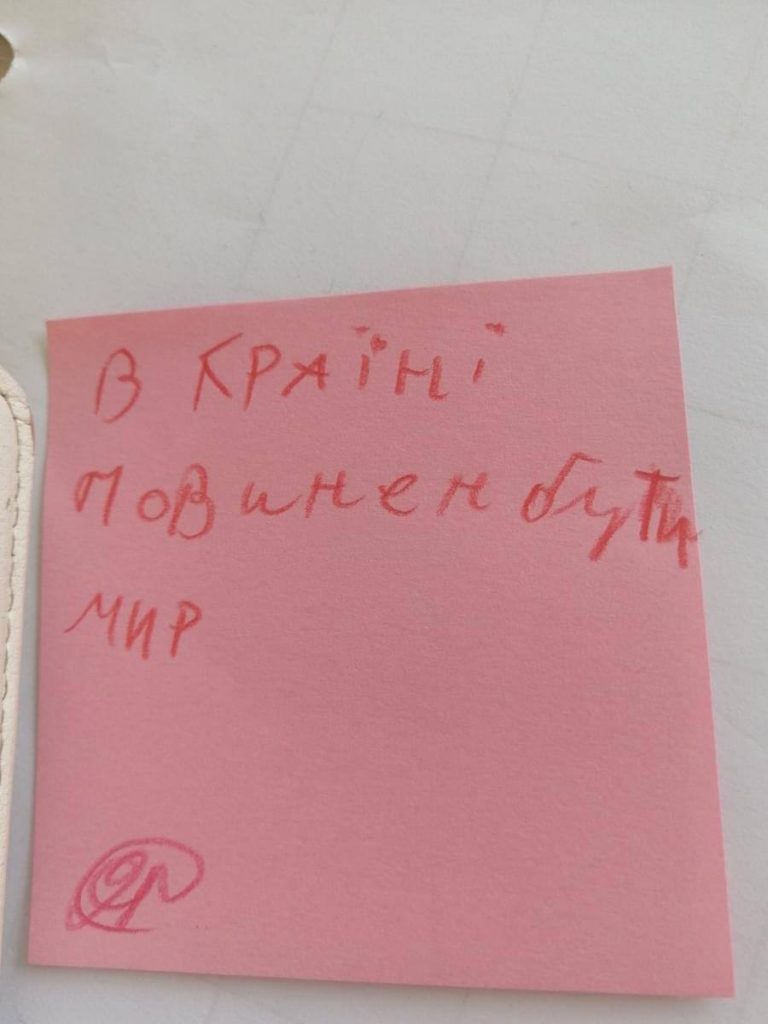 В КРАЇНІ
повинен бути
мир